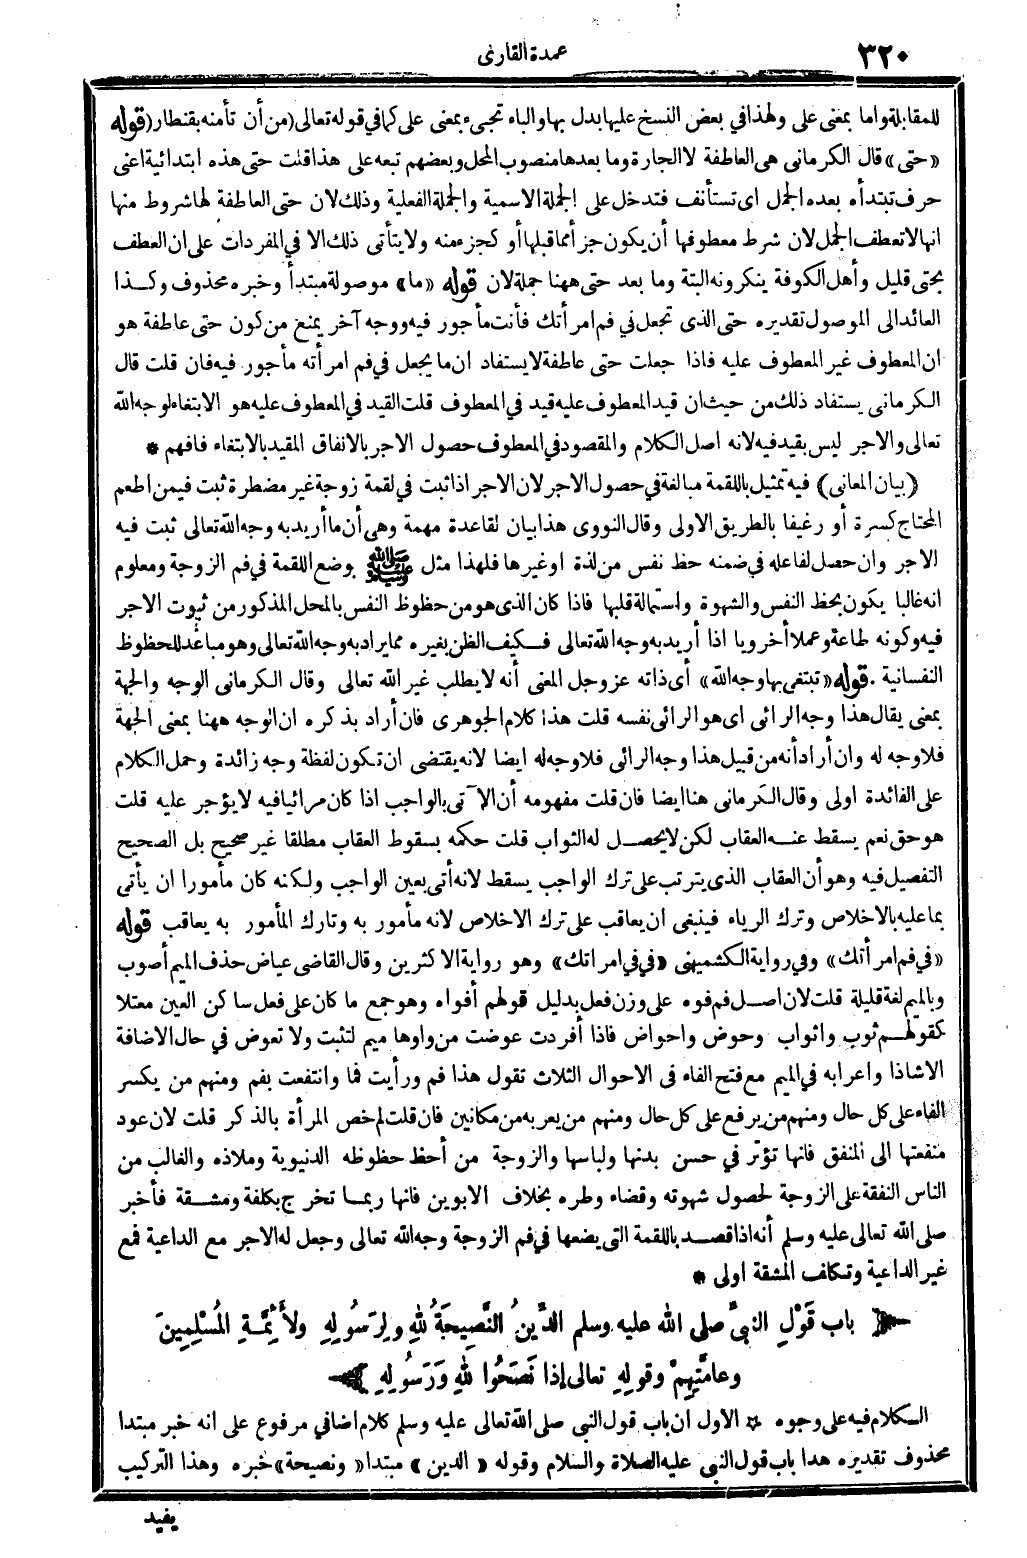 ٣٢٠
عمدة القارى
للمقابلة واما بمعنى على ولهذا فى بعض النسخ عليها بدل بها والباء تجىء بمعنى على كما فى قوله تعالى (من أن تأمنه بقنطار) قوله
«حتى» قال الكرمانى هى العاطفة لا الجارة وما بعدها منصوب المحل وبعضهم تبعه على هذا قلت حتى هذه ابتدائية اعنى
حرف تبتدأ به بعده الجمل اى تستأنف فتدخل على الجملة الاسمية والجملة الفعلية وذلك لان حتى العاطفة لها شروط منها
انها لا تعطف الجمل لان شرط معطوفها أن يكون جزأ مما قبلها أو كجزء منه ولا يتأتى ذلك الا فى المفردات على ان العطف
بحتى قليل وأهل الكوفة ينكرونه البتة وما بعد حتى ههنا جملة لان قوله «ما» موصولة مبتدأ وخبره محذوف وكذا
العائد الى الموصول تقديره حتى الذى تجعل فى فم امرأتك فأنت مأجور فيه ووجه آخر يمنع من كون حتى عاطفة هو
ان المعطوف غير المعطوف عليه فاذا جعلت حتى عاطفة لا يستفاد ان ما يجعل فى فم امرأته مأجور فيه فان قلت قال
الكرمانى يستفاد ذلك من حيث ان قيد المعطوف عليه قيد فى المعطوف قلت القيد فى المعطوف عليه هو الابتغاء لوجه الله
تعالى والاجر ليس بقيد فيه لانه اصل الكلام والمقصود فى المعطوف حصول الاجر بالانفاق المقيد بالابتغاء فافهم *
(بيان المعانى) فيه تمثيل باللقمة مبالغة فى حصول الاجر لان الاجر اذا ثبت فى لقمة زوجة غير مضطرة ثبت فيمن اطعم
المحتاج كسرة أو رغيفا بالطريق الاولى وقال النووى هذا بيان لقاعدة مهمة وهى أن ما أريد به وجه الله تعالى ثبت فيه
الاجر وان حصل لفاعله فى ضمنه حظ نفس من لذة او غيرها فلهذا مثل ﷺ بوضع اللقمة فى فم الزوجة ومعلوم
انه غالبا يكون بحظ النفس والشهوة واستمالة قلبها فاذا كان الذى هو من حظوظ النفس بالمحل المذكور من ثبوت الاجر
فيه وكونه طاعة وعملا أخرويا اذا أريد به وجه الله تعالى فكيف الظن بغيره مما يراد به وجه الله تعالى وهو مباعد للحظوظ
النفسانية . قوله «تبتغى بها وجه الله» أى ذاته عز وجل المعنى أنه لا يطلب غير الله تعالى وقال الكرمانى الوجه والجهة
بمعنى يقال هذا وجه الرائى اى هو الرائى نفسه قلت هذا كلام الجوهرى فان أراد بذكره ان الوجه ههنا بمعنى الجهة
فلا وجه له وان أراد أنه من قبيل هذا وجه الرائى فلا وجه له ايضا لانه يقتضى ان تكون لفظة وجه زائدة وحمل الكلام
على الفائدة اولى وقال الكرمانى هنا ايضا فان قلت مفهومه أن الآتى بالواجب اذا كان مرائيا فيه لا يؤجر عليه قلت
هو حق نعم يسقط عنه العقاب لكن لا يحصل له الثواب قلت حكمه بسقوط العقاب مطلقا غير صحيح بل الصحيح
التفصيل فيه وهو أن العقاب الذى يترتب على ترك الواجب يسقط لانه أتى بعين الواجب ولكنه كان مأمورا ان يأتى
بما عليه بالاخلاص وترك الرياء فينبغى ان يعاقب على ترك الاخلاص لانه مأمور به وتارك المأمور به يعاقب قوله
«فى فم امرأتك» وفى رواية الكشميهنى «فى فى امرأتك» وهو رواية الاكثرين وقال القاضى عياض حذف الميم أصوب
وبالميم لغة قليلة قلت لان اصل فم فوه على وزن فعل بدليل قولهم أفواه وهو جمع ما كان على فعل ساكن العين معتلا
كقولهم ثوب واثواب وحوض واحواض فاذا أفردت عوضت من واوها ميم لتثبت ولا تعوض فى حال الاضافة
الا شاذا واعرابه فى الميم مع فتح الفاء فى الاحوال الثلاث تقول هذا فم ورأيت فما وانتفعت بفم ومنهم من يكسر
الفاء على كل حال ومنهم من يرفع على كل حال ومنهم من يعربه من مكانين فان قلت لم خص المرأة بالذكر قلت لان عود
منفعتها الى المنفق فانها تؤثر فى حسن بدنها ولباسها والزوجة من أحظ حظوظه الدنيوية وملاذه والغالب من
الناس النفقة على الزوجة لحصول شهوته وقضاء وطره بخلاف الابوين فانها ربما تخرج بكلفة ومشقة فأخبر
صلى الله تعالى عليه وسلم أنه اذا قصد باللقمة التى يضعها فى فم الزوجة وجه الله تعالى وجعل له الاجر مع الداعية فمع
غير الداعية وتكلف المشقة اولى *
باب قَوْلِ النبىِّ صلى الله عليه وسلم الدِّينُ النَّصِيحَةُ للهِ ولِرَسُولِهِ ولأَئِمَّةِ المُسْلِمِينَ
وعامَّتِهِمْ وقولِهِ تعالى إذا نَصَحُوا للهِ وَرَسُولِهِ
الكلام فيه على وجوه * الاول ان باب قول النبى صلى الله تعالى عليه وسلم كلام اضافى مرفوع على انه خبر مبتدا
محذوف تقديره هذا باب قول النبى عليه الصلاة والسلام وقوله «الدين» مبتدا «ونصيحة» خبره وهذا التركيب
يفيد